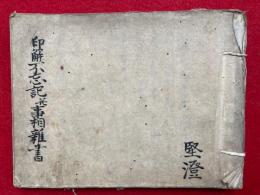 印解不忘記并事相雜書
堅澄